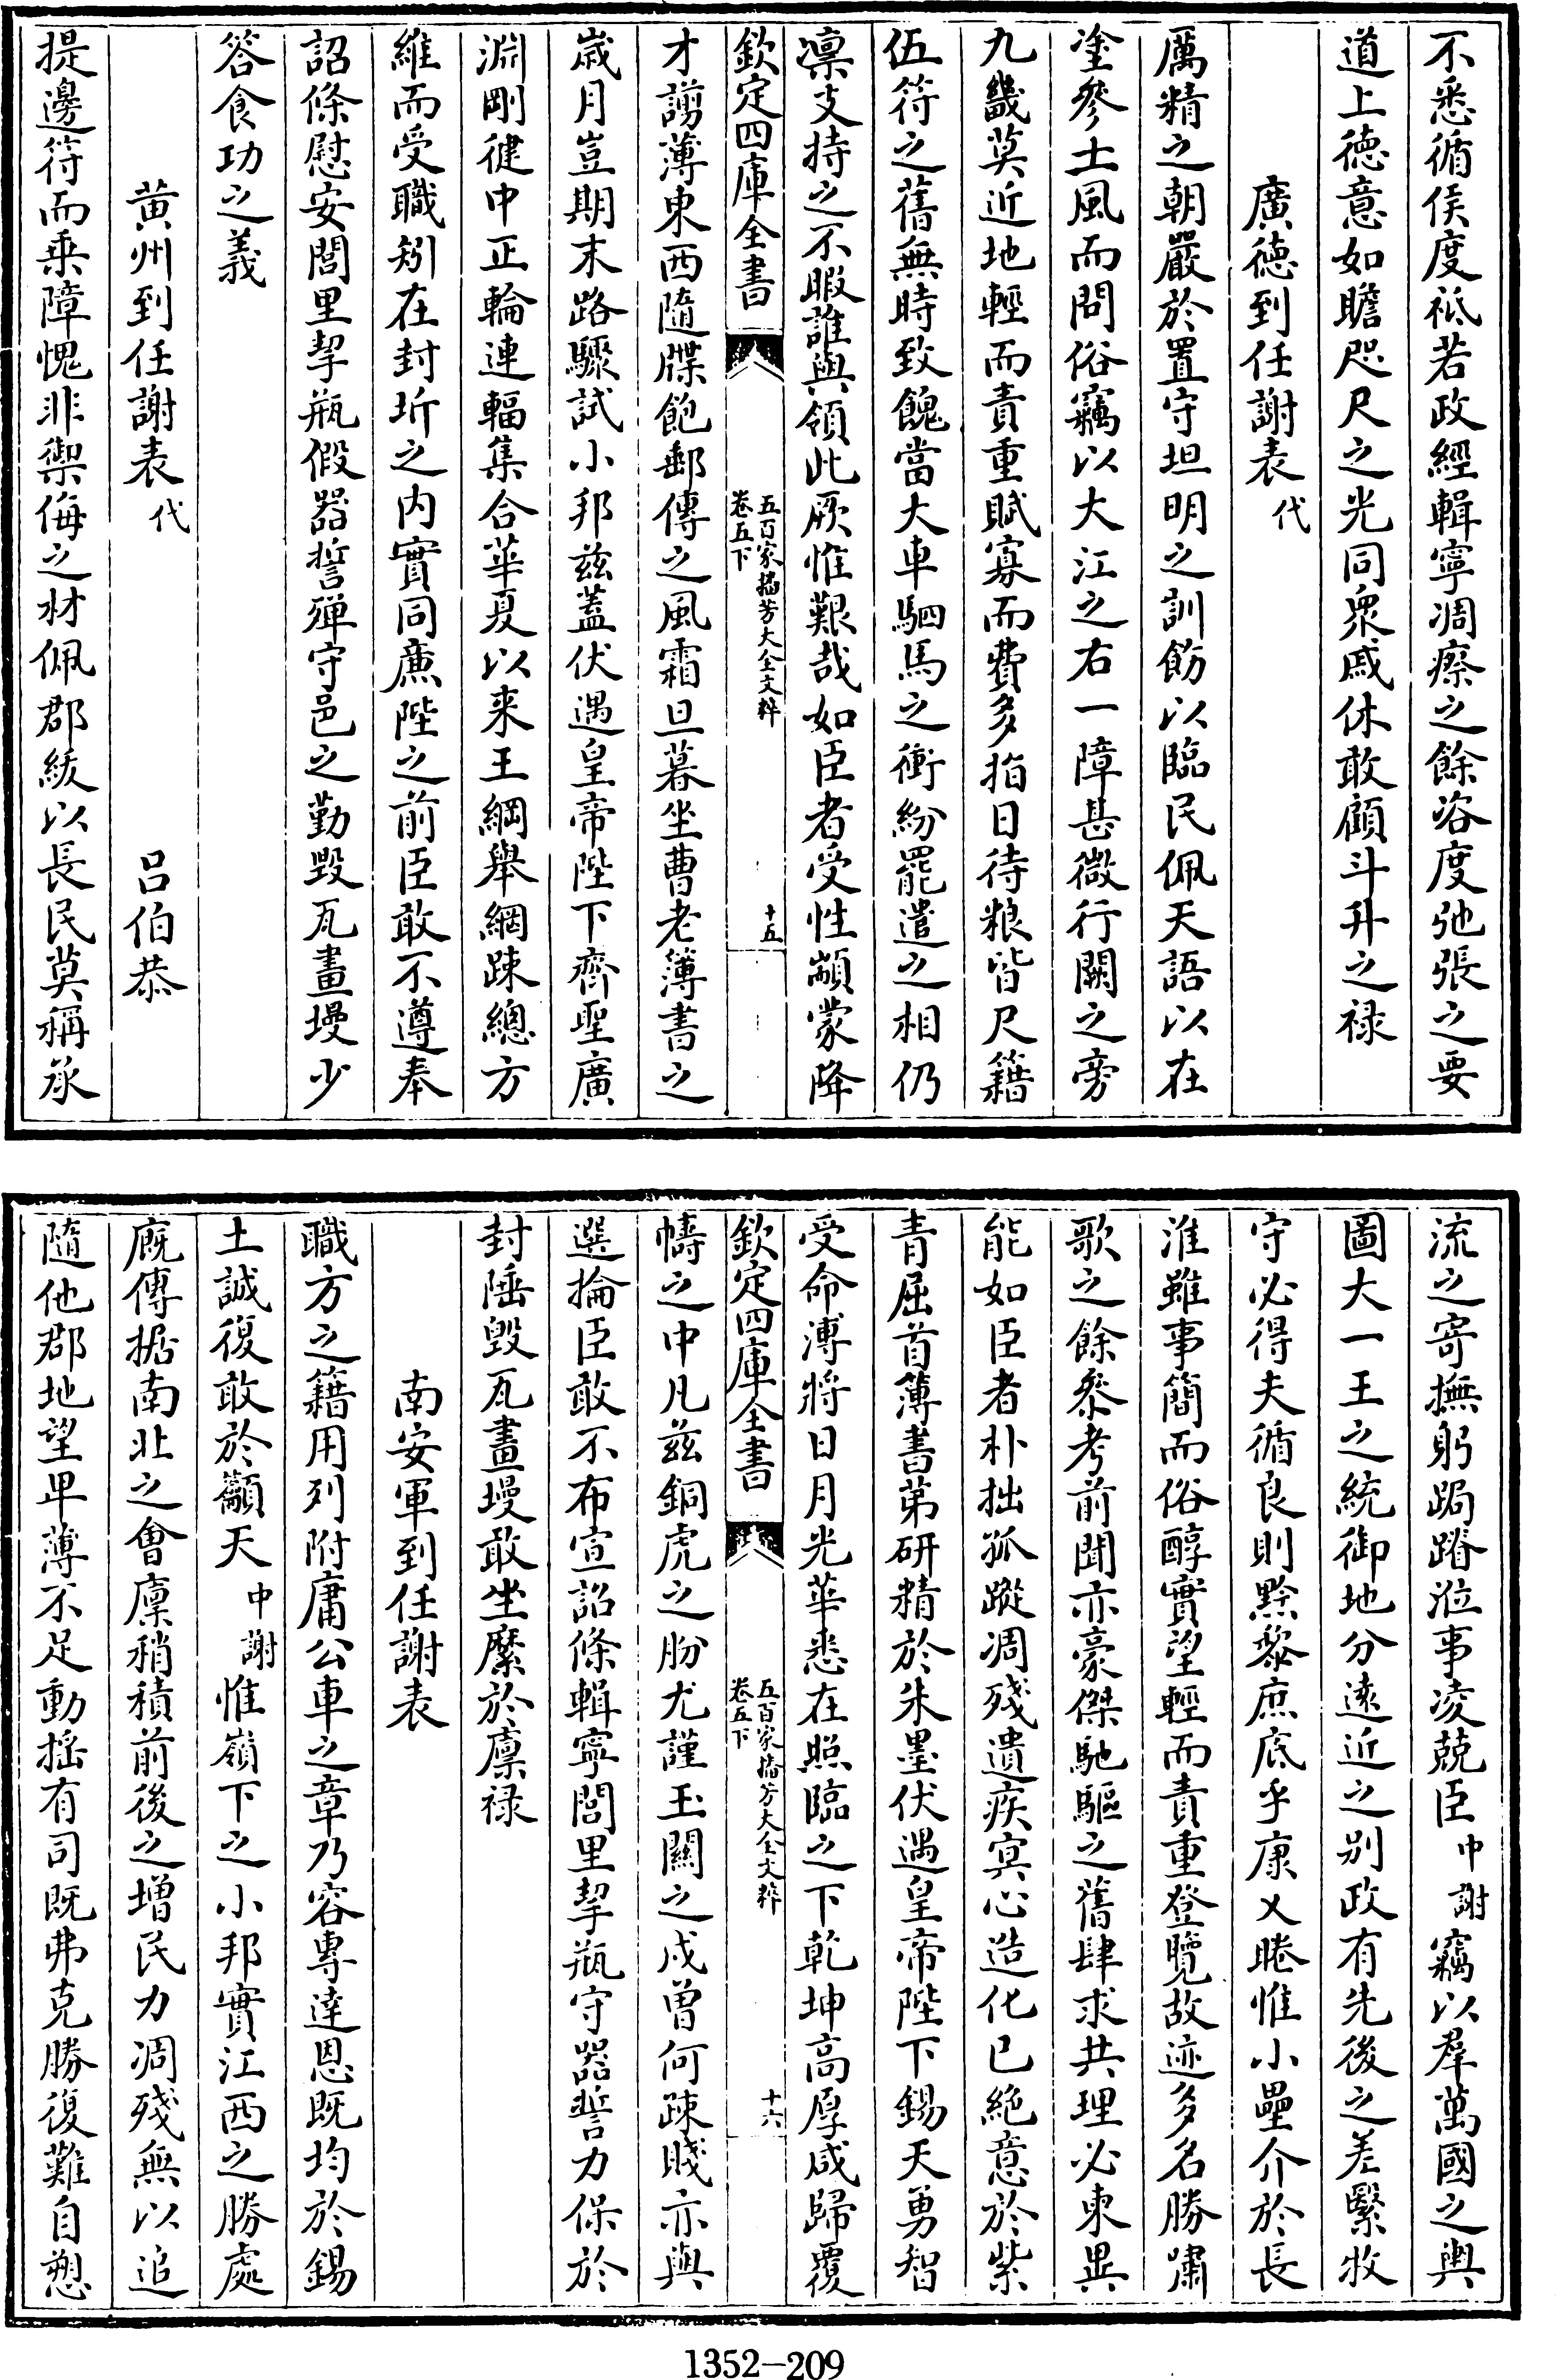 不悉循侯度祗若政經輯寧凋瘵之餘洛度弛張之要
道上德意如瞻咫尺之光同衆戚休敢顧斗升之禄
廣德到任謝表代
厲精之朝嚴於置守坦明之訓飭以臨民佩天語以在
塗參士風而問俗竊以大江之右一障甚微行闕之旁
九畿莫近地輕而責重賦寡而費多指日待粮皆尺籍
伍符之舊無時致餽當大車駟馬之衝紛罷遣之相仍
凛支持之不暇誰與領此厥惟艱哉如臣者受性顓蒙降
欽定四庫全書
五百家播芳大全文粹
卷五下
十五
才謭薄東西隨牒飽郵傳之風霜旦暮坐曹老簿書之
歳月豈期末路驟試小邦兹蓋伏遇皇帝陛下齊聖廣
淵剛健中正輪連輻集合華夏以来王綱舉網踈總方
維而受職矧在封圻之内實同廉陛之前臣敢不遵奉
詔條慰安閭里挈瓶假器誓殫守邑之勤毀瓦畫墁少
答食功之義
黄州到任謝表代 呂伯恭
提邊符而乘障愧非禦侮之材佩郡紱以長民莫稱承
流之寄撫躬跼蹐涖事凌兢臣中謝竊以羣萬國之輿
圖大一王之統御地分遠近之别政有先後之差緊牧
守必得夫循良則黔黎庶底乎康乂睠惟小壘介於長
淮雖事簡而俗醇實望輕而責重登覽故迹多名勝嘯
歌之餘叅考前聞亦豪傑馳驅之舊肆求共理必柬異
能如臣者朴拙孤蹤凋殘遺疾寘心造化已絶意於紫
青屈首薄書第研精於朱墨伏遇皇帝陛下錫天勇智
受命溥將日月光華悉在照臨之下乾坤高厚咸歸覆
欽定四庫全書
五百家播芳大全文粹
卷五下
十六
幬之中凡兹銅虎之肦尤謹玉關之戍曾何踈賤亦與
選掄臣敢不布宣詔條輯寧閭里挈瓶守器誓力保於
封陲毁瓦畫墁敢坐縻於廩禄
南安軍到任謝表
職方之籍用列附庸公車之章乃容專達恩既均於錫
土誠復敢於籲天中謝惟嶺下之小邦實江西之勝處
厩傳据南北之會廩稍積前後之增民力凋殘無以追
隨他郡地望卑薄不足動揺有司既弗克勝復難自愬
1352-209